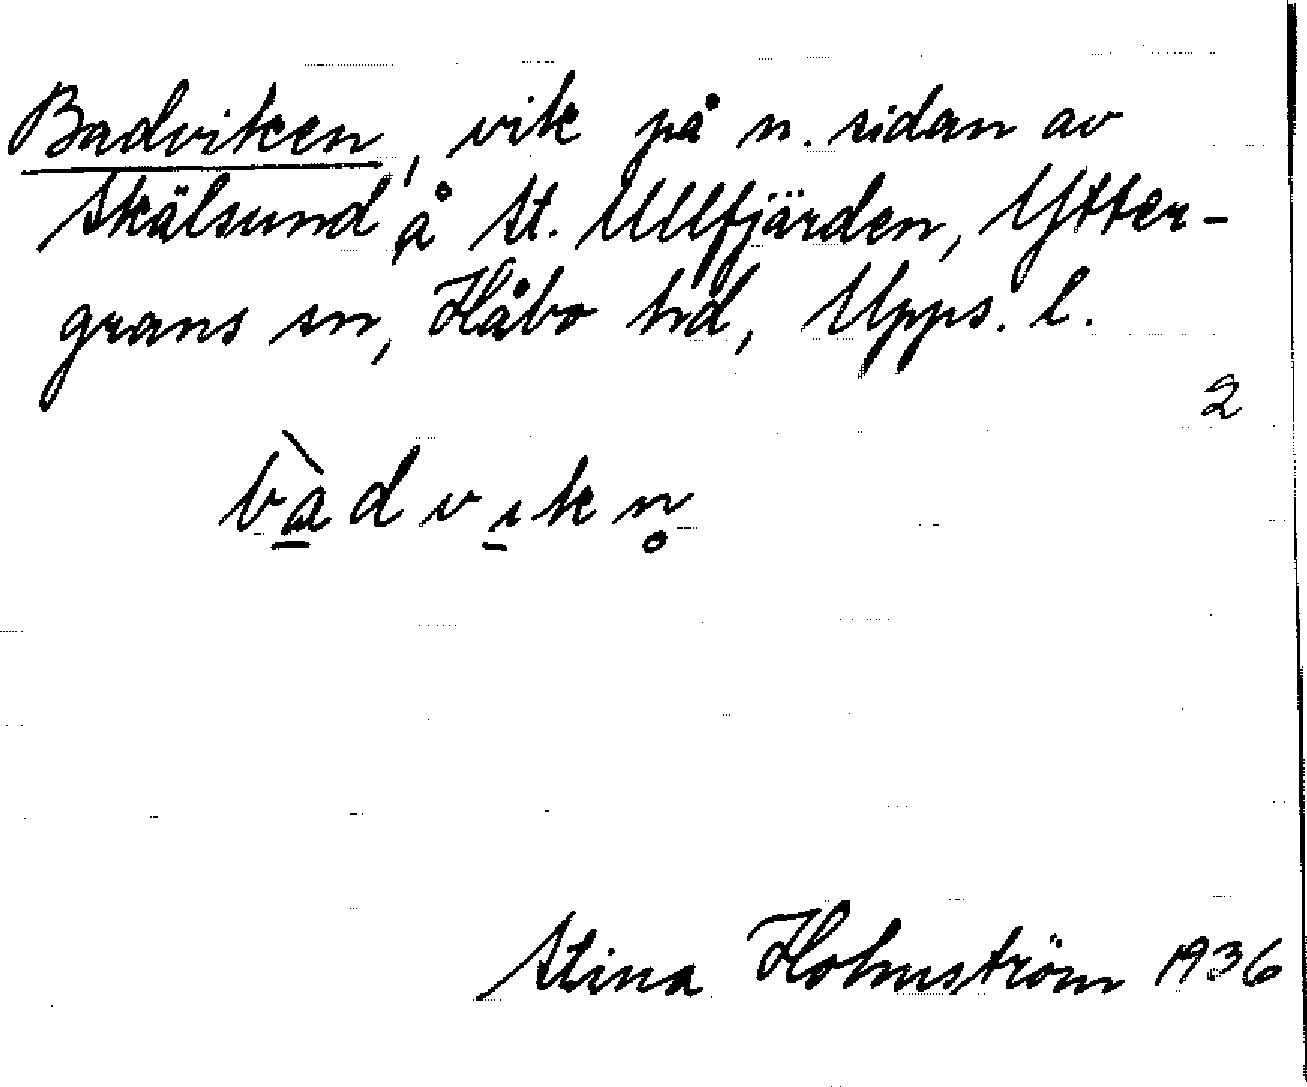 Badviken, vik på n. sidan av
Skälsund å St. Ullfjärden, Ytter-
grans sn, Håbo hd, Upps. l.
2
bàdvıkn̥
Stina Holmström 1936